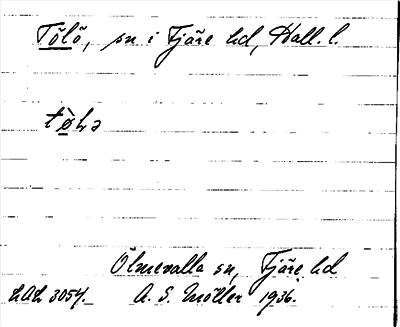 Tölö, sn i Fjäre hd, Hall. l.
tø̀Lə
Ölmevalla sn, Fjäre hd
LAL 3054. A. S. Möller 1936.